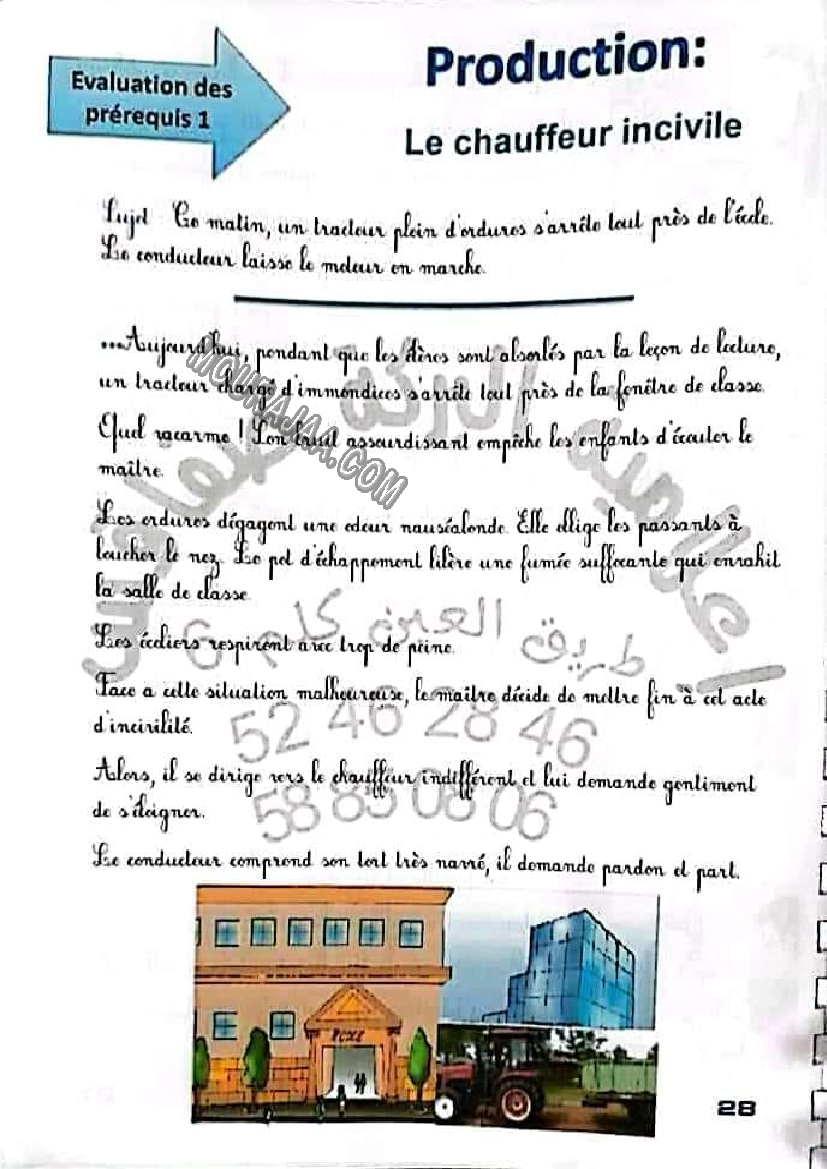 Evaluation des
prérequis 1
Production:
Le chauffeur incivile
Sujet Ce matin, un tracteur plein d'ordures s'arrête tout près de l'école.
Le conducteur laisse le moteur en marche.
...Aujourd'hui, pendant que les élèves sont absorbés par la leçon de lecture,
un tracteur chargé d'immondices s'arrête tout près de la fenêtre de classe.
Quel vacarme ! Son bruit assourdissant empêche les enfants d'écouter le
maître.
Les ordures dégagent une odeur nauséabonde. Elle oblige les passants à
boucher le nez. Le pot d'échappement libère une fumée suffocante qui envahit
la salle de classe.
Les écoliers respirent avec trop de peine.
Face a cette situation malheureuse, le maître décide de mettre fin à cet acte
d'incivilité.
Alors, il se dirige vers le chauffeur indifférent et lui demande gentiment
de s'éloigner.
Le conducteur comprend son tort très navré, il demande pardon et part.
MOURAJAA.COM
طريق العين كلم 6
52 46 28 46
58 85 08 06
28